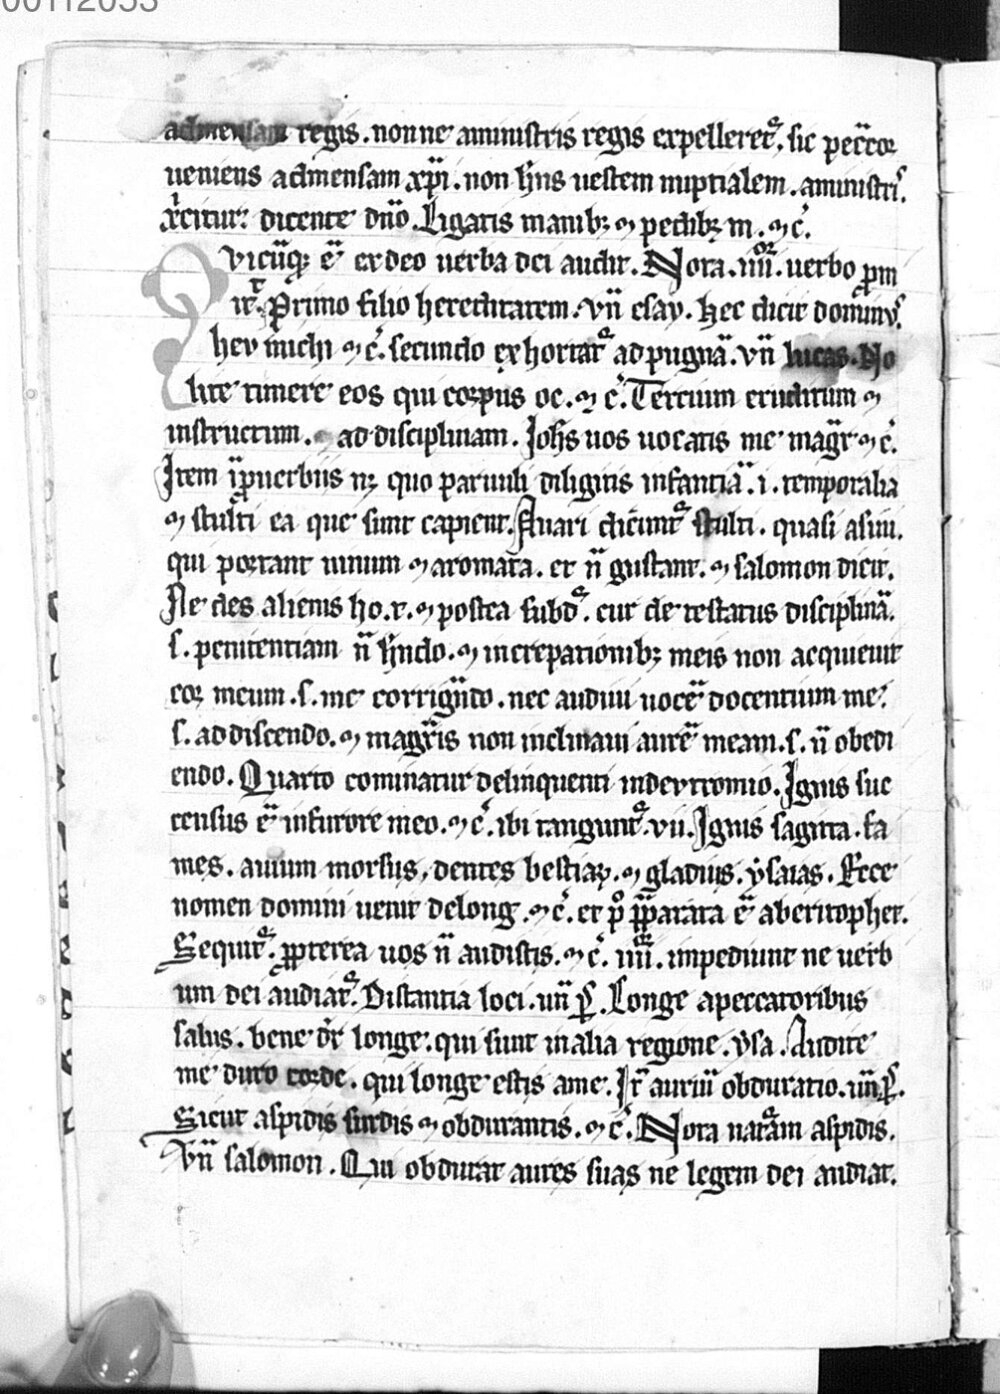 00112033
admensam regis. nonne aministris regis expelleret᷑. sic pecc̄or
ueniens admensam xp̄i. non hn̄s uestem nuptialem. aministri᷒.
dicente dn̄o. Ligatis manib; ⁊ pedib; m. ⁊ c̾.
Vicūq; ē ex deo uerba dei audit. Nota .iiii. uerbo
Primo filio hereditatem. vn̄ esay. Hec dicit dominus.
heu michi ⁊ c̾. secundo exhortat᷑ ad pugnā. vn̄ lucas. No
lite timere eos qui corpus oc. ⁊ c̾. Tercium eruditum ⁊
instructum. ad disciplinam. Joh̄s uos uocatis me magr̄ ⁊ c̾.
Item īꝓuerbiis quo paruuli diligitis infantiā .i. temporalia
⁊ stulti ea que sunt capient. Auari dicunt᷑ stulti. quasi asini.
qui portant uinum ⁊ aromata. et n̄ gustant. ⁊ salomon dicit.
Ne des alienis ho. r. ⁊ postea subd᷑. cur detestatus disciplinā.
s. penitentiam n̄ hn̄do. ⁊ increpationib; meis non acquieuit
cor meum .s. me corrign̄do. nec audiui uocē docentium me.
s. addiscendo. ⁊ magr̄is non inclinaui aurē meam .s. n̄ obedi
endo. Quarto cominatur delinquenti indeytromio. Ignis suc
census ē infurore meo. ⁊ c̾. ibi tangunt᷑ .vii. Ignis sagitta. fa
mes. auium morsus, dentes bestiaꝝ. ⁊ gladius. ysaias. Ecce
nomen domini uenit delong. ⁊ c̾. et p̊ p̄parata ē aberitophet.
Sequit᷑. ꝓpterea uos n̄ audistis. ⁊ c̾. iiii. impediunt ne uerb
um dei audiat᷑. Distantia loci. un̄ p̄s. Longe apeccatoribus
salus. bene dr̄ longe. qui sunt inalia regione. ysa. Audite
me duro corde. qui longe estis ame. Ir̄ auriū obduratio. un̄ p̄s.
Sicut aspidis surdis ⁊ obdurantis. ⁊ c̾. Nota nat᷑am aspidis.
Vn̄ salomon. Qui obdurat aures suas ne legem dei audiat.